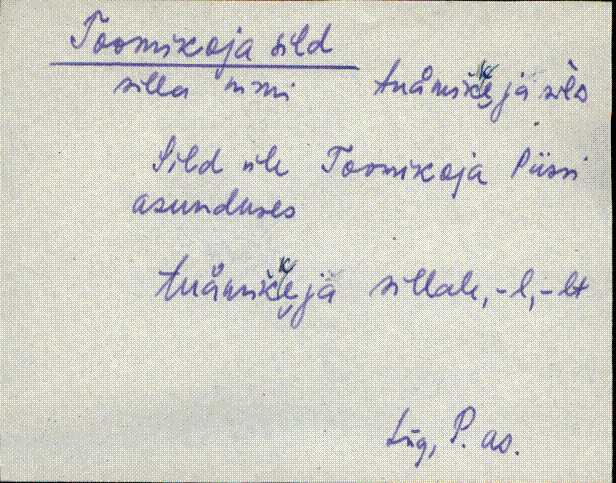 Toomikoja sild
silla nimi tuåmikk̬e̬jä silD
Sild üle Toomikoja Püssi
asunduses
tuåmikk̬e̬jä sillale, -l, -lt
Lüg, P. as.